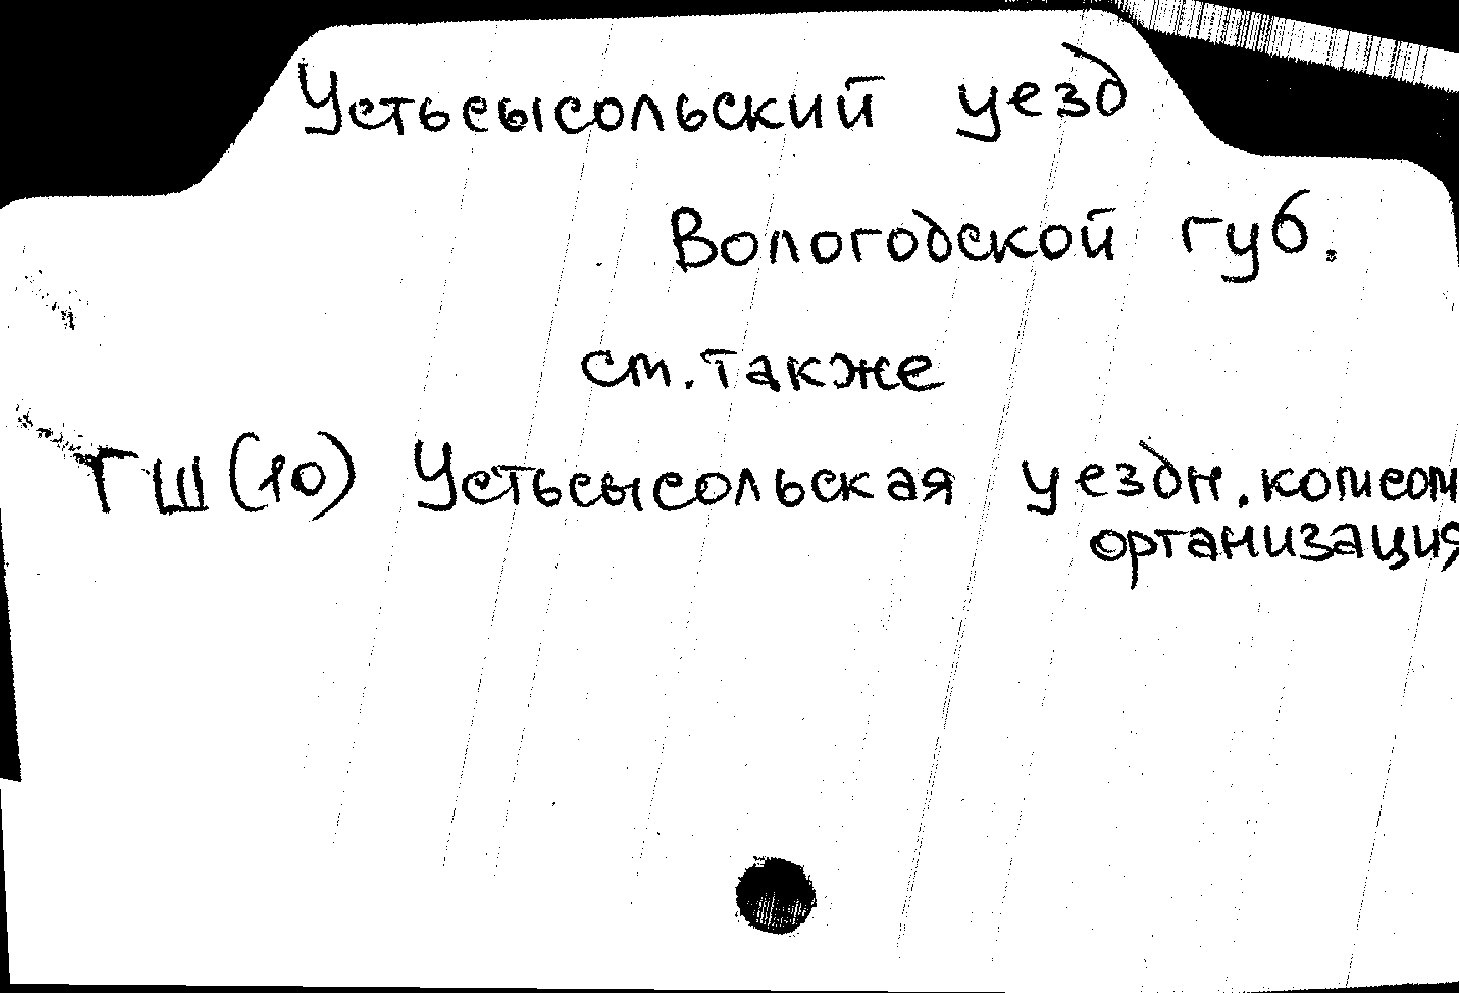 Устьсысольский уезд
Вологодской губ.
см. также
ГШ(10) Устьсысольская уездн. комсом
организация